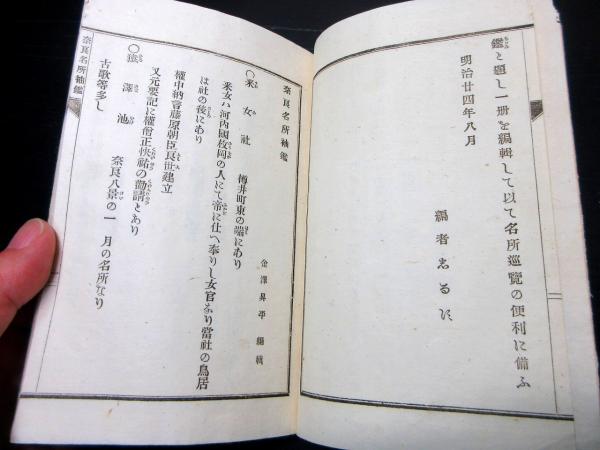 鑑と題し一册を編輯して以て名所巡覽の便利に備ふ
明治廿四年八月
編者志るす
奈良名所袖鑑
金澤昇平編輯
○采女社 樽井町東の端にあり
采女ハ河内國枚岡の人にて帝に仕へ奉りし女官なり當社の鳥居
は社の後にあり
權中納言藤原朝臣良世建立
又元要記に權僧正快祐の勸請とあり
○猿澤池 奈良八景の一 月の名所なり
古歌等多し
奈良名所袖鑑